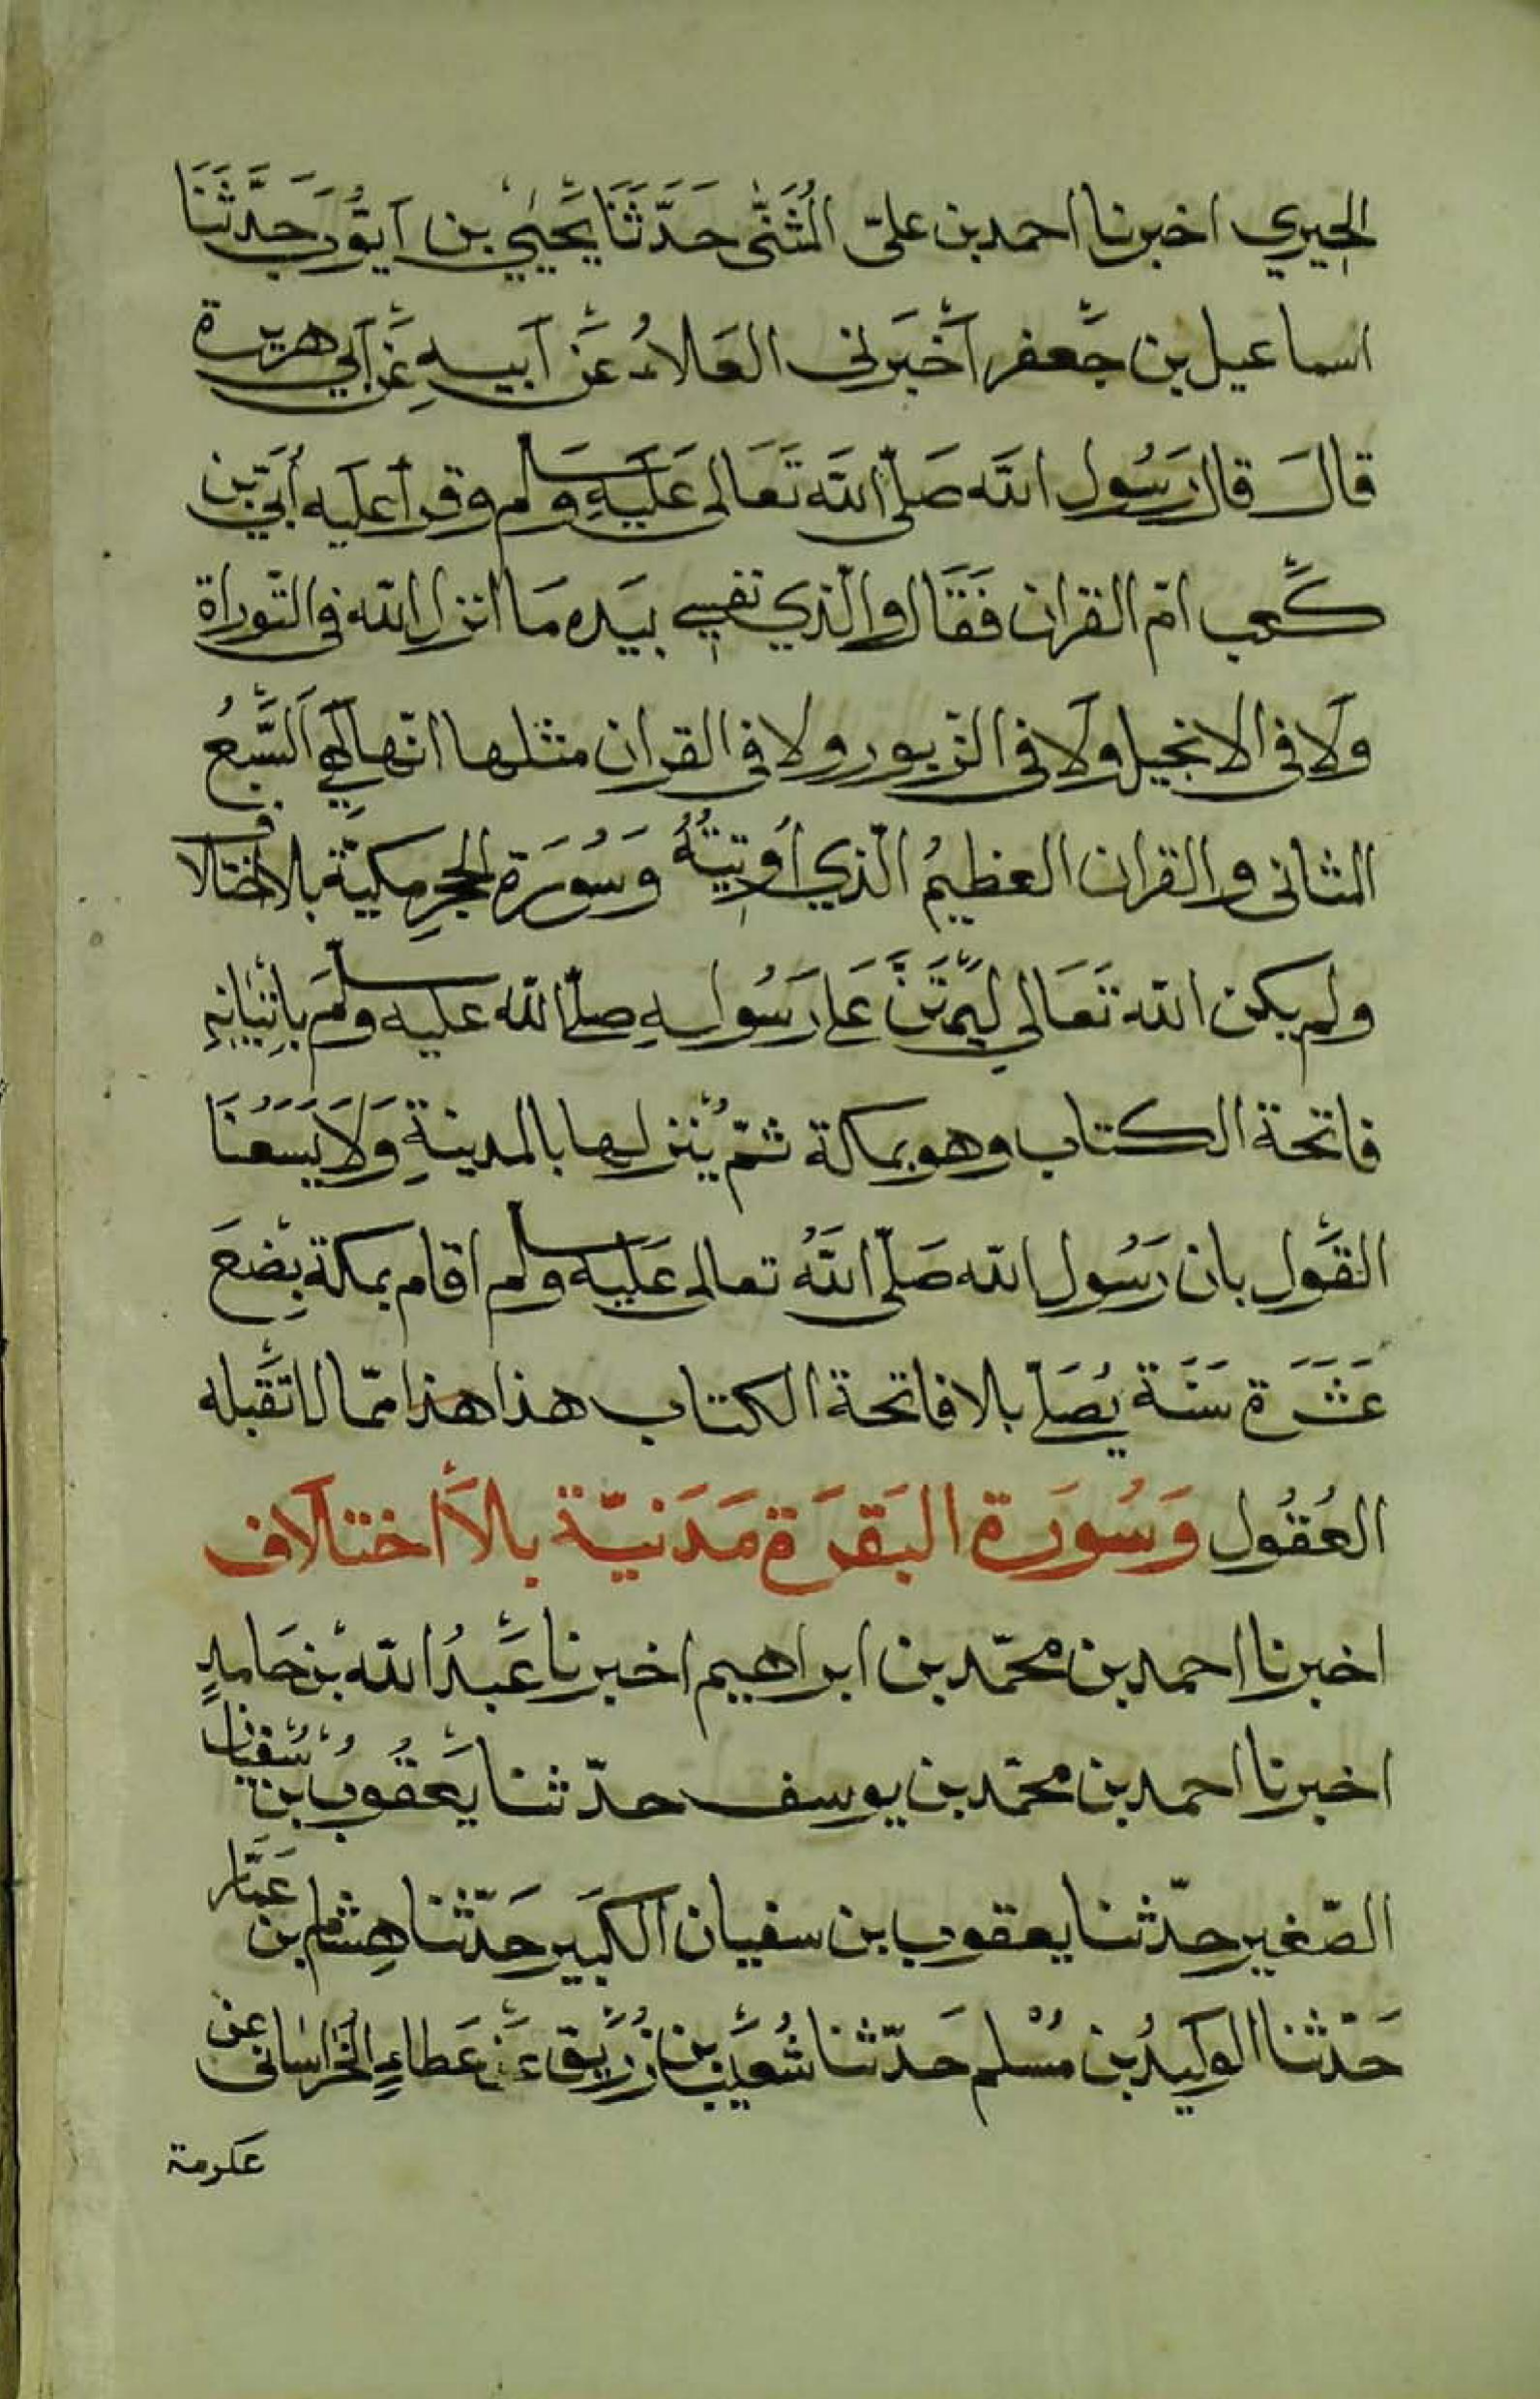 الحِيري اخبرنا احمد بن عليّ المُثَنّٰى حَدّثَنَا يَحْيىٰ بن اَيّوُب حَدَّثَنَا
اسماعيل بن جَعْفر اَخْبَرنى العَلاءُ عَنْ اَبيهِ عَنْ اَبي هريرة
قالَ قال رَسُول الله صَلّى الله تَعَالى عَلَيْهِ وسلم وقرأ عليه اُبَيّ بن
كَعْب امّ القران فَقَال والّذي نفسِي بيَده مَا انزل الله فى التّوراة
وَلَا فى الانجيل ولَا فى الزّبور ولا فى القران مثلها انّها لَهِيَ السَّبْعُ
المثانى والقران العظيمُ الّذي اُوتِيتُهُ وَسُورَة الحِجْرِ مكيّة بلا اختلاف
ولم يكن الله تَعَالى لِيَمْتَنَّ عَلى رَسُولهِ صلّى الله عليه وسلّمَ بِاِتْيَانِهِ
فاتحة الكتاب وهو بمكة ثمّ يُنْزلها بالمدينةِ وَلَا يَسَعُنَا
القَوْل بان رَسُول الله صَلّى اللهُ تعالى عَلَيْه وسلم اقام بمكة بِضْعَ
عَشَرَة سَنَة يُصَلّي بلا فاتحة الكتاب هذا هذا ممّا لا تَقْبله
العُقُول وَسُورَة البَقَرَة مَدَنيّة بلاَ اَختلاف
اخبرنا احمد بن محمّد بن ابراهيم اخبرنا عَبْدُ الله بْن حَامدٍ
اخبرنا احمد بن محمّد بن يوسف حدّثنا يَعْقُوبُ بْن سُفْيان
الصّغير حدّثنا يعقوب بن سفيان الكَبير حَدّثنا هِشام بن عَمّار
حَدّثنا الوَليدُ بن مُسْلم حَدّثنا شُعَيْب بن زُرَيْق عَنْ عَطاءِ الخُرَاسَانى عن
عكرمة